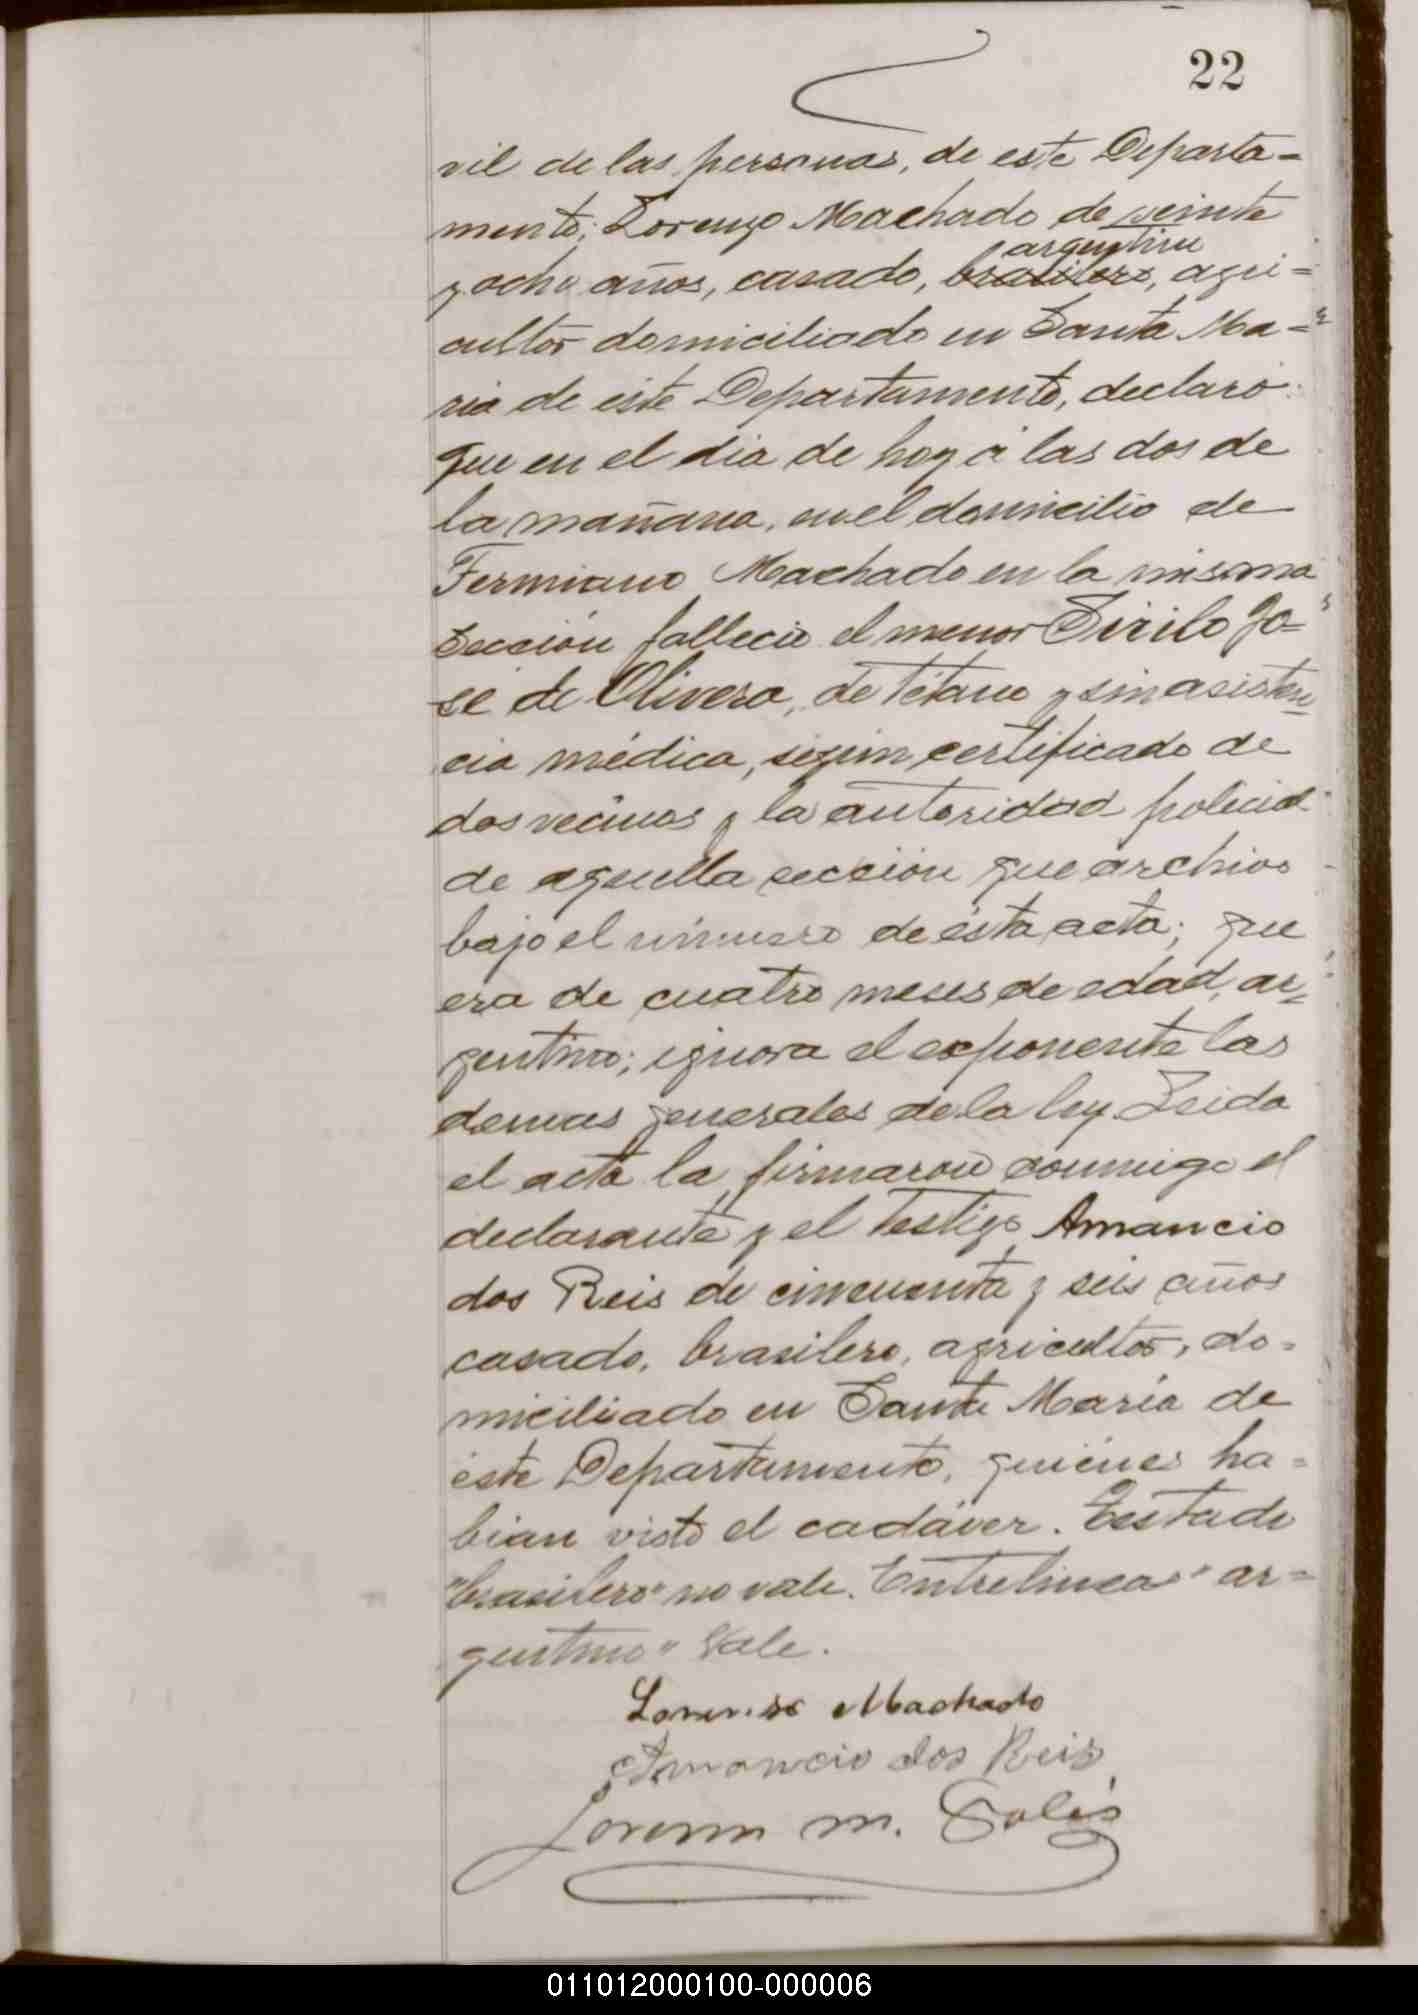 22
vil de las personas, de este Departa=
mento; Lorenzo Machado de veinte
argentino
y ocho años, casado, brasilero, agri=
cultor domiciliado en Santa Ma=
ria de este Departamento, declaró:
que en el dia de hoy á las dos de
la mañana, en el domicilio de
Fermiano Machado en la misma
Sección falleció el menor Sirilo Jo=
sé de Olivera, de tétano y sin asisten
cia médica, según certificado de
dos vecinos y la autoridad policial
de aquella sección que archivo
bajo el número de ésta acta; que
era de cuatro meses de edad, ar=
gentino; ignora el exponente las
demas generales de la ley. Leida
el acta la firmaron conmigo el
declarante y el testigo Amancio
dos Reis de cincuenta y seis años
casado, brasilero, agricultor, do=
miciliado en Santa María de
éste Departamento, quiénes ha=
bian visto el cadáver. Testado
"brasilero" no vale. Entrelineas "ar=
gentino" Vale.
Lorenso Machado
Amancio dos Reis
m. Solis
011012000100-000006